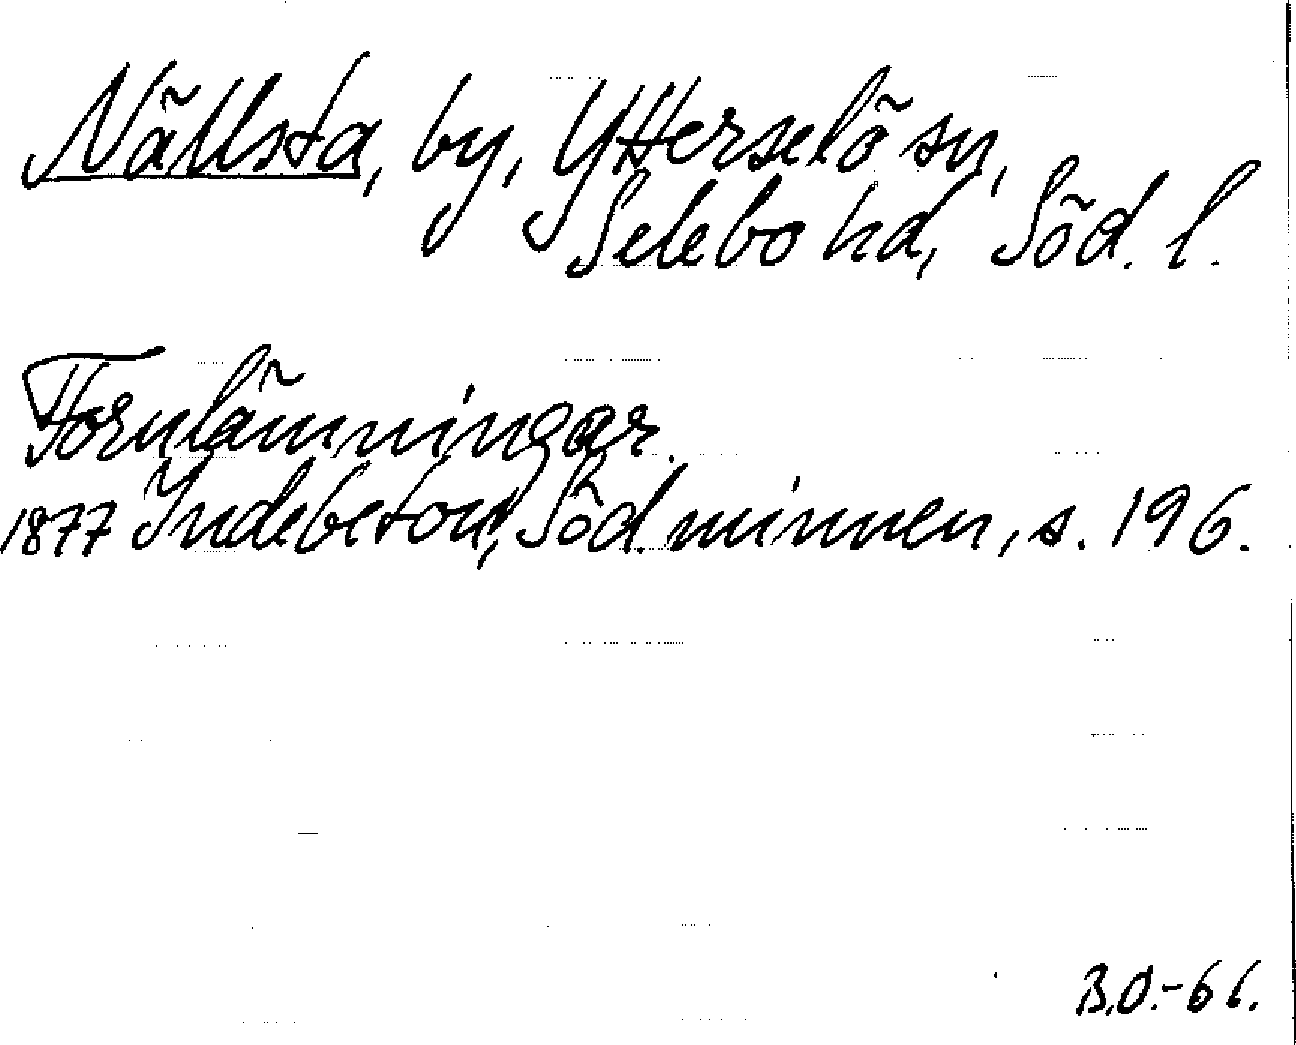 Nällsta, by, Ytterselö sn,
Selebo hd, Söd. l.
Fornlämningar.
1877 Indebetou, Söd. minnen, s. 196.
B.O.-66.